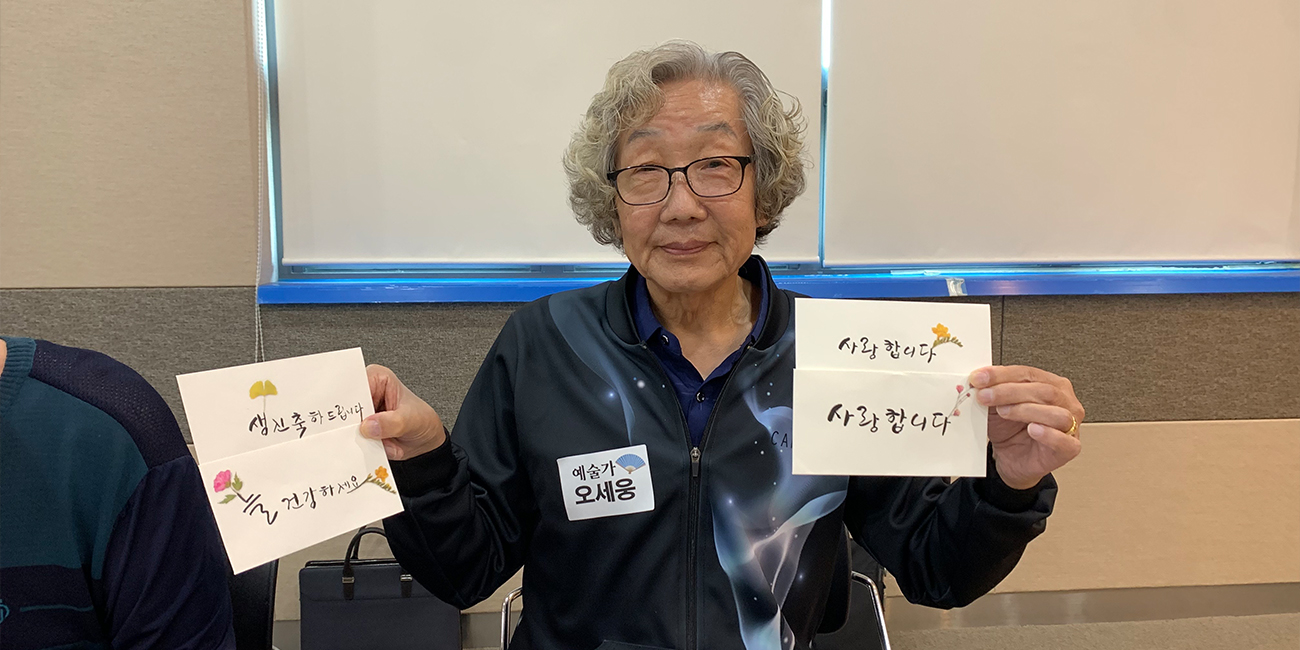 생신축하드립니다
늘 건강하세요
예술가
오세웅
사랑합니다
사랑합니다
CA